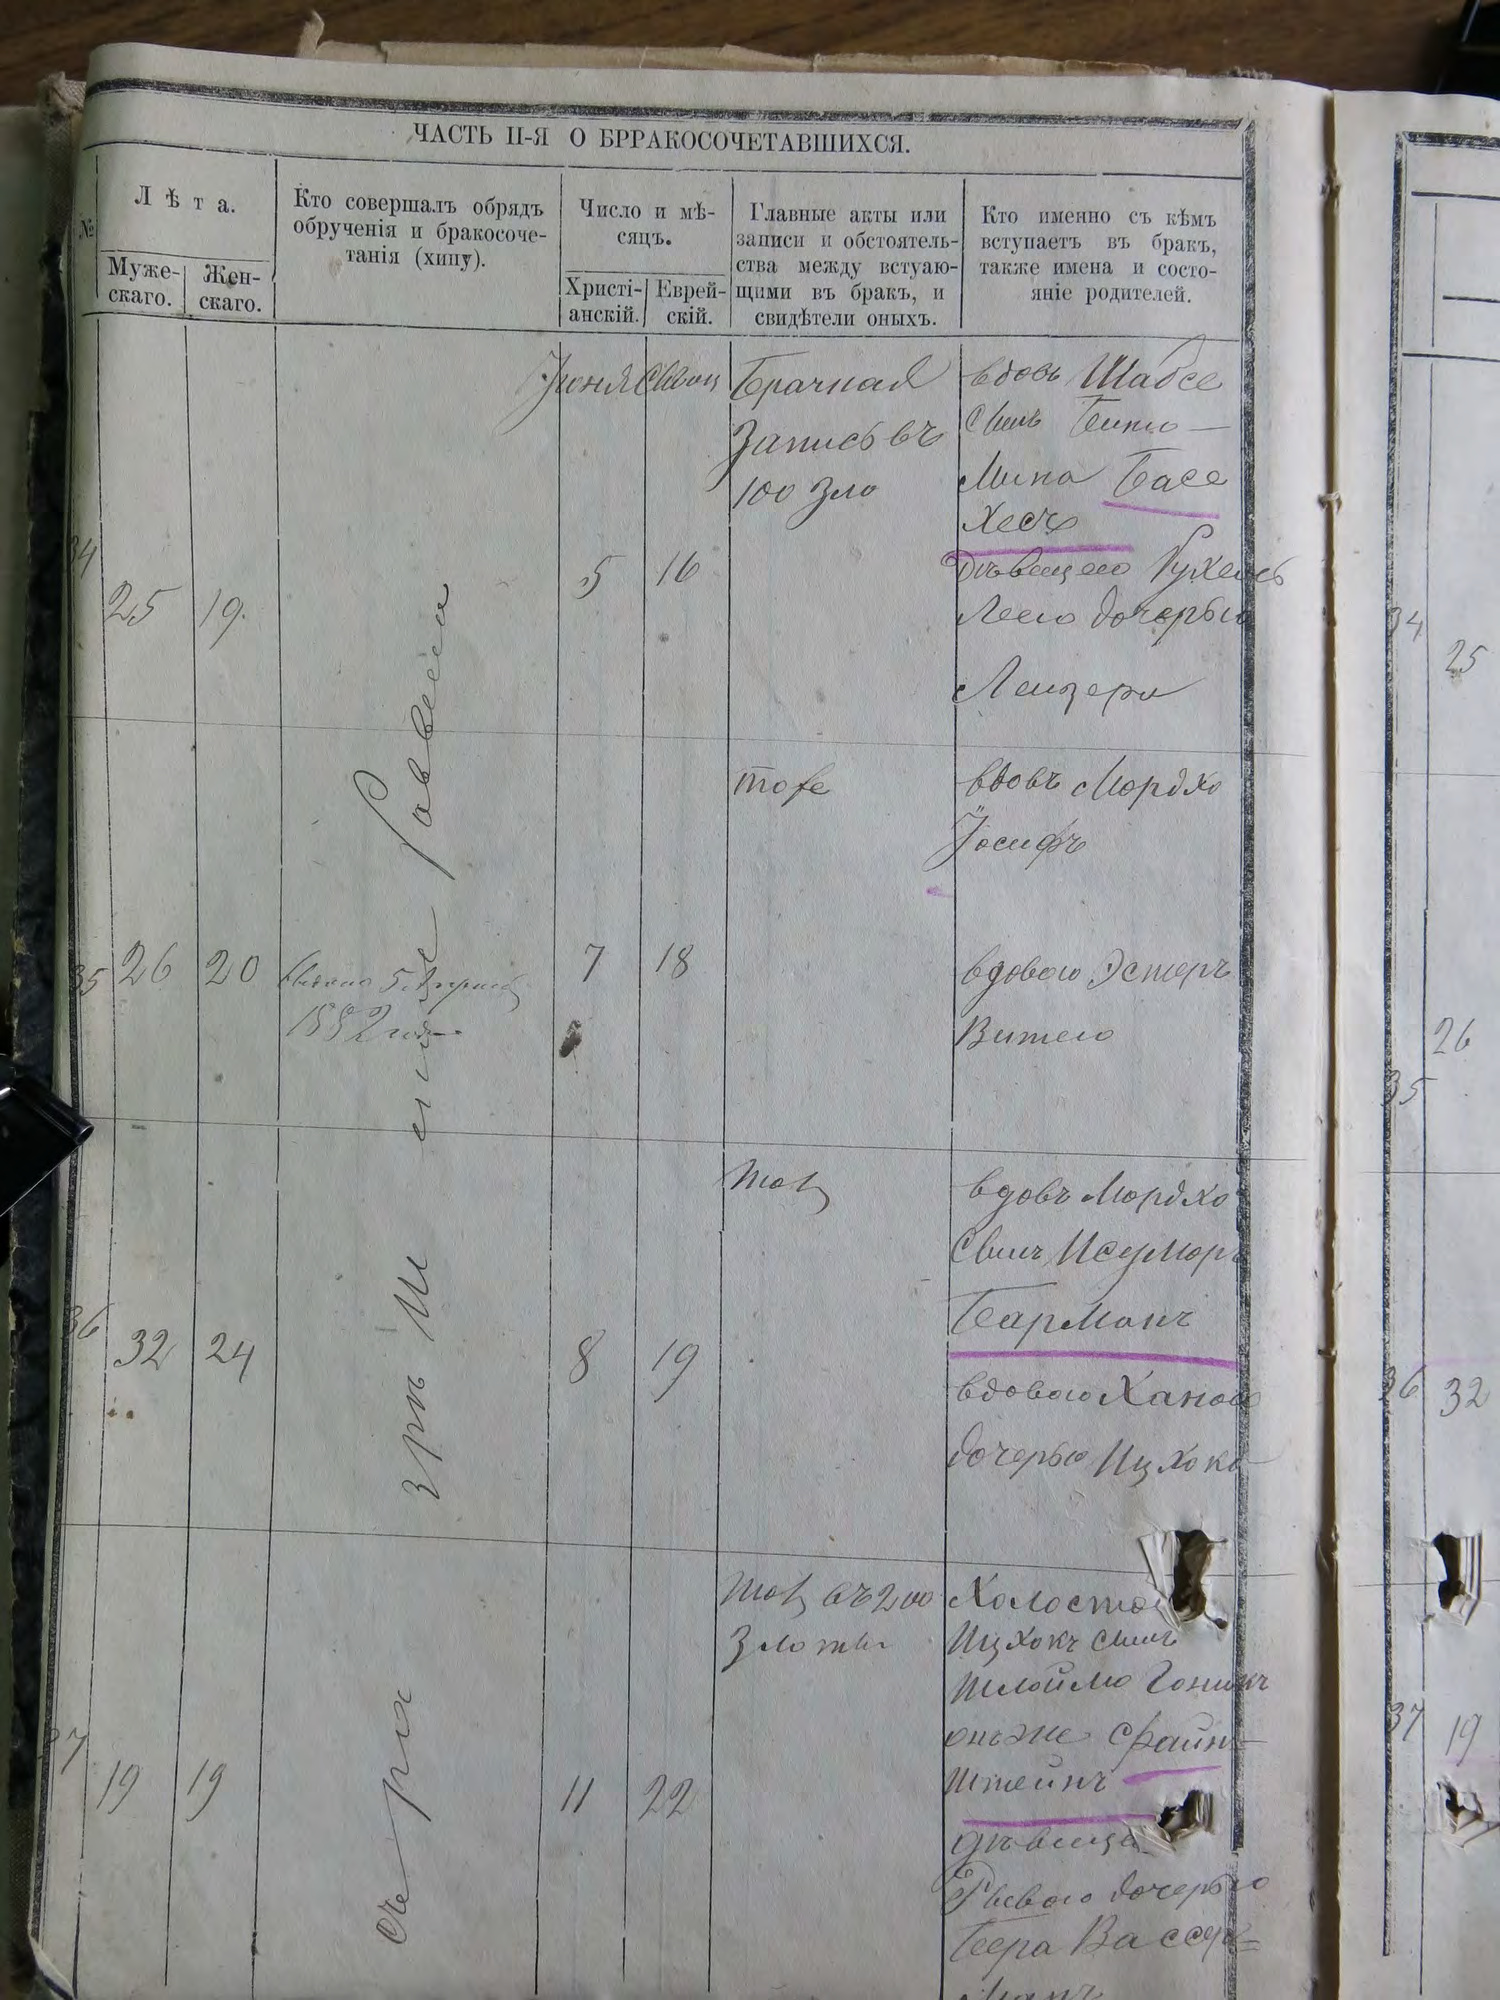 ЧАСТЬ II-Я О БРРАКОСОЧЕТАВШИХСЯ.
№
Лѣта.
Муже-
скаго.
Жен-
скаго.
Кто совершалъ обрядъ
обрученія и бракосоче-
танія (хипу).
Число и мѣ-
сяцъ.
Христі-
анскій.
Еврей-
скій.
Главные акты или
записи и обстоятель-
ства между встуаю-
щими въ бракъ, и
свидѣтели оныхъ.
Кто именно съ кѣмъ
вступаетъ въ бракъ,
также имена и состо-
яніе родителей.
34
25
19
Іюня
5
16
Брачная
Запись въ
100 зло
вдовъ Шабсе
Сынъ
Басе
Хесъ
Лею дочерью
Лейзера
35
26
20
1882
7
18
тоже
вдовъ Мордко
Іосифъ
вдовою Эстеръ
Витею
36
32
24
8
19
вдовъ Мордко
Сынъ
Беарманъ
вдовою Ханою
дочерью Ицхока
37
19
19
11
22
въ 200
Злоты
Холостой
Ицхокъ сынъ
Шлоймо
онъ же Файн-
штейнъ
дѣвица
дочерью
Бера Вассер=
манъ
34
25
26
35
36
32
37
19